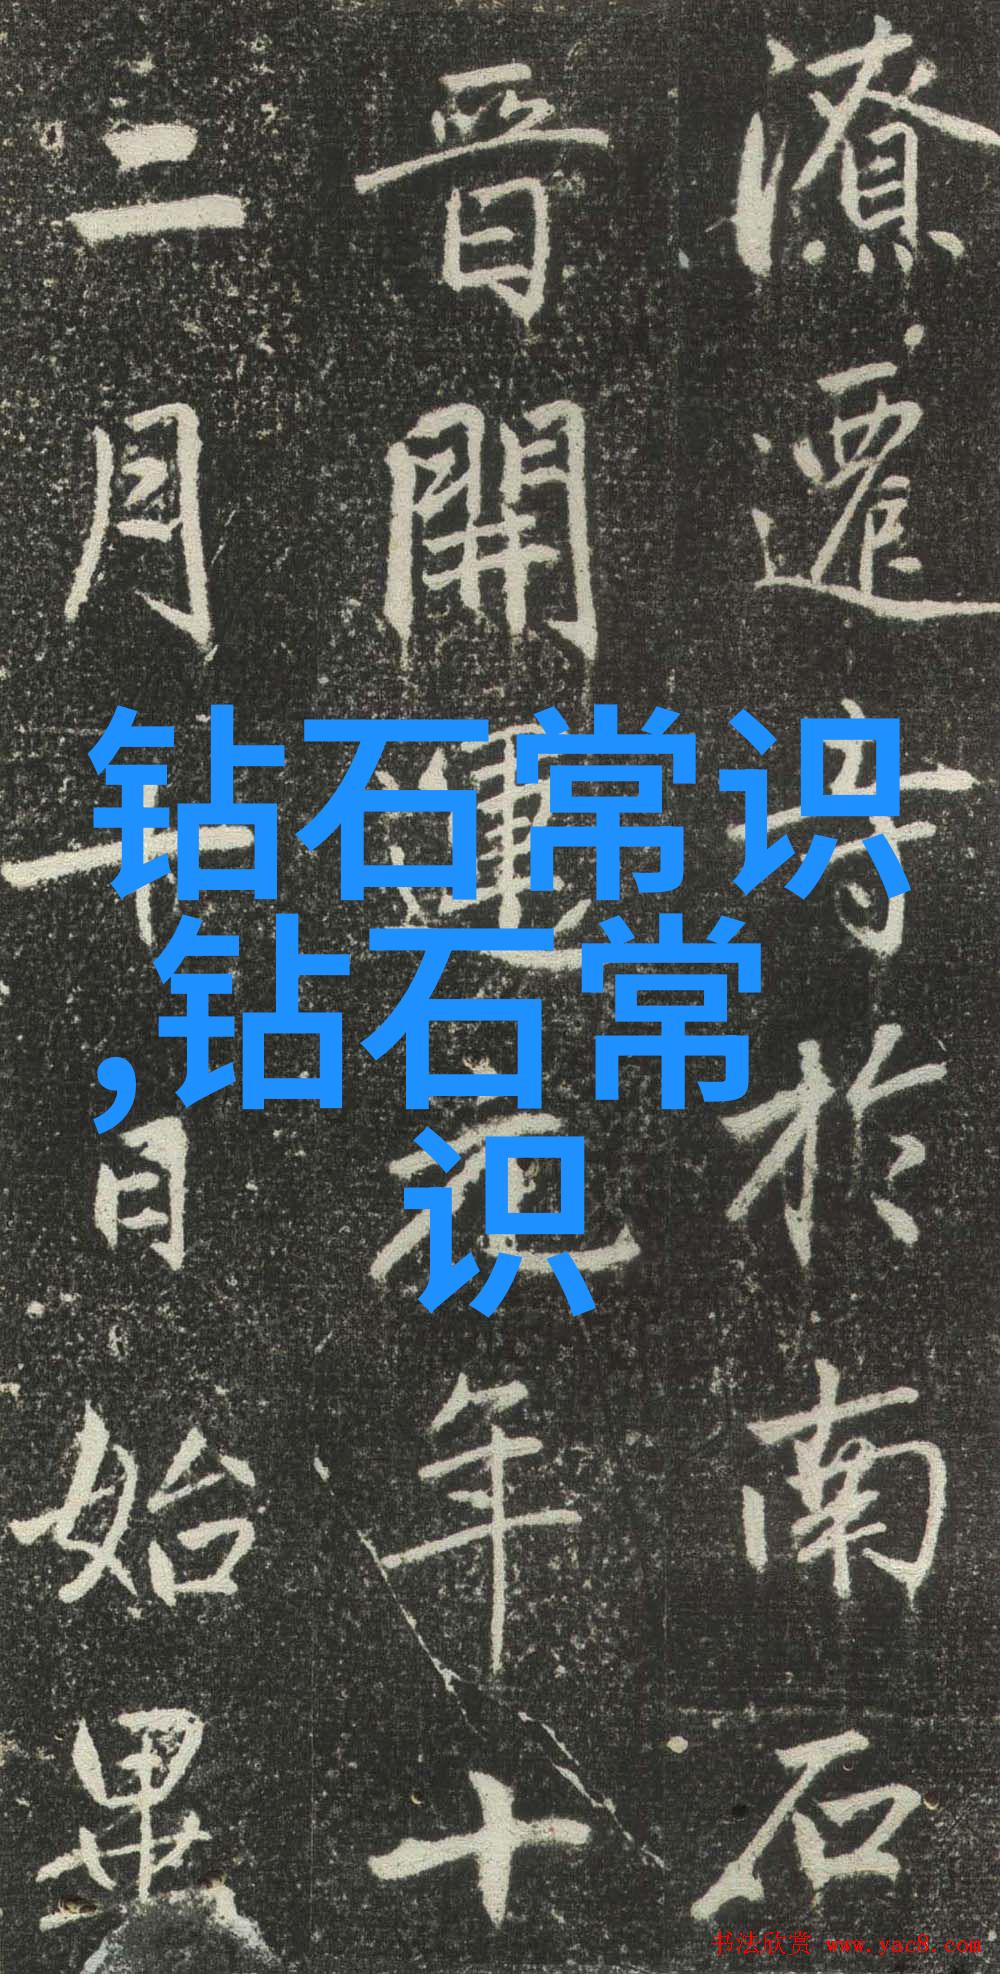 钻石常识
,钻石常
识
潦遷寺於南石
晉開運元年十
二月十日始畢
书法欣赏 www.yac8.com